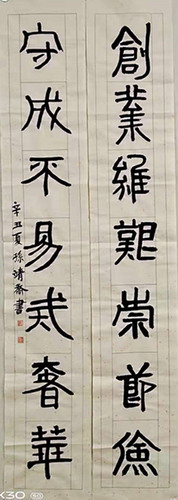 創業維艱崇節儉
守成不易戒奢華
辛丑夏孫清泰書
K30